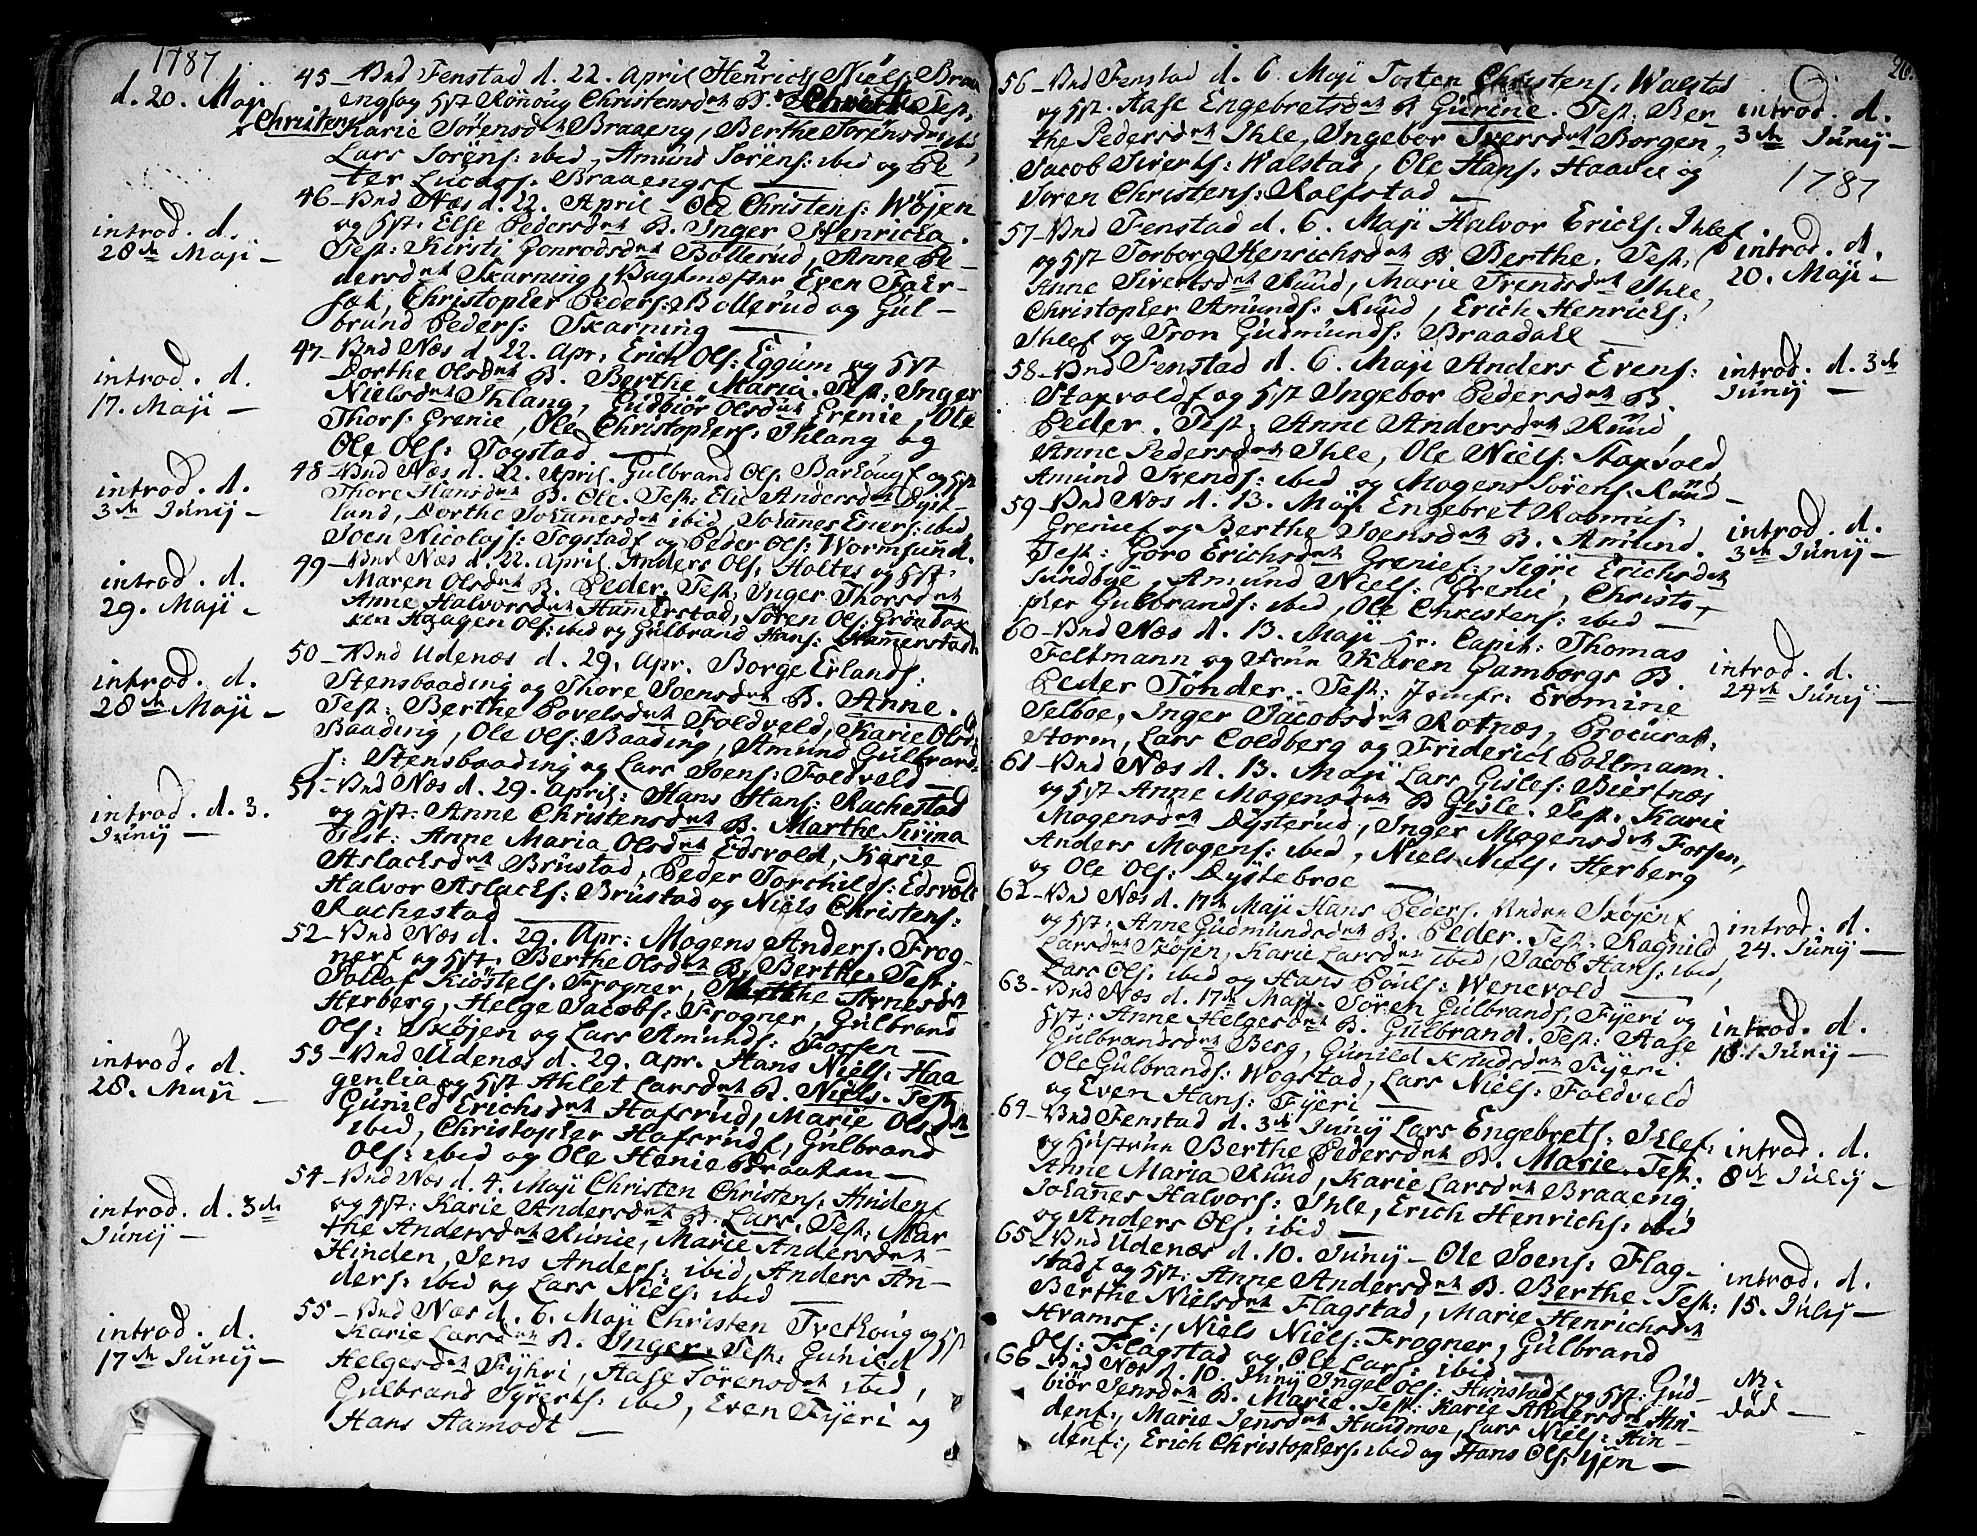 1787
d. 20. Maji
x Christens
45 - Bnd Fenstad d. 22. April Henrich Niels: Braa
engs og Hst Rönoug Christensdr B. Test.
Karie Sörensdr Braaeng, Berthe Sörensdr ibd,
Lars Sörens: ibid, Amund Sörens: ibid og Pe
ter Lucass: Braaengs -
introd. d.
28de Maji -
46 - Bnd Næs d. 22. April - Ole Christens: Wöjen
og Hst: Else Pedersdr B. Inger Henricka.
Test: Kirsti Gonrodsdr Bollerud, Anne Pe-
dersdr Skarning, Vagtmæster Even Faer-
Christopher Peders: Bollerud og Gul-
brand Peders: Skarning -
introd. d.
17. Maji -
47 - Bnd Næs d. 22. Apr: Erich Ols: Eggum og Hst
Dorthe Olsdr B. Berthe Maria. Test: Inger
Nielsdr Ihlang, Gudbiör Olsdr Grenie, Ole
Thors: Grenie, Ole Christophers: Ihlang og
Ole Ols: Togstad -
introd. d.
3de Junij -
48 - Bnd Næs d. 22. April. Gulbrand Ols: og Hst
Thore Hansdr B. Ole. Test: Elie Andersdr Dyst-
land, Dorthe Johanesdr ibid, Johanes Eners: ibid
Joen Nicolajs: Togstad og Peder Ols: Wormsund.
introd. d.
29. Maji -
49 - Bnd Næs d. 22. April. Anders Ols: Holtes og Hst:
Maren Olsdr B. Peder. Test: Inger Thorsdr
Anne Halvorsdr Hamerstad, Sören Ols: Grönbak
ken Haagen Ols: ibid og Gulbrand Hans: Hamerstad.
introd. d.
28de Maji -
50 - Bnd Udenæs d. 29. Apr. Borge Erlands:
Stensbaading og Thore Joensdr B. Anne.
Test: Berthe Povelsdr Foldveld, Karie Olsdr
Baading, Ole Ols: Baading, Amund Gulbrand
s: Stensbaading og Lars Joens: Foldveld -
introd. d. 3.
Junij -
51 - Bnd Næs d. 29. April: Hans Hans: Rachestad
og Hst: Anne Christensdr B. Marthe Sirina
Test: Anne Maria Olsdr Edsvold, Karie
Aslachsdr Brustad, Peder Torchilds: Edsvold
Halvor Aslachs: Brustad og Niels Christens:
Rachestad -
52 - Bnd Næs d. 29. Apr: Mogens Anders: Frog-
ners og Hst: Berthe Olsdr B. Berthe. Test:
Tollof Kiöstels: Frogner, Arnesdr
Herberg, Helge Jacobs: Frogner, Gulbrand
Ols: Skojen og Lars Amunds: Fossen -
introd. d.
28. Maji -
53 - Bnd Udenæs d. 29. Apr. Hans Niels: Haa
genlia og Hst Ahlet Larsdr B. Niels. Test
Gunild Erichsdr Hafsrud, Marie Olsdr
ibid, Christopher Hafsruds, Gulbrand
Ols: ibid og Ole Henie Braaten -
introd. d. 3de
Junij -
54 - Bnd Næs d. 4. Maji Christen Christens: Hindens
og Hst: Karie Andersdr B. Lars. Test: Mar-
the Andersdr Runie, Marie Andersdr
Hinden, Jens Anders: ibid, Anders An-
ders: ibid og Lars Niels: ibid
introd. d.
17de Junij -
55 - Bnd Næs d. 6. Maji Christen Tvethoug og Hst
Karie Larsdr B. Inger. Test: Gunild
Helgesdr Fyhri, Aase Sörensdr ibid,
Gulbrand Syverts: ibid, Even Fyeri og
Hans Aamodt -
26.
56 - Bnd Fenstad d. 6. Maji Tosten Christens: Walstad
og Hst: Aase Engebretsdr B Gurine. Test: Ber
the Pedersdr Ihle, Ingebor Iversdr Borgen,
Jacob Siverts: Walstad, Ole Hans: Haavie og
Soren Christens: Rolfstad -
introd. d.
3de Junij -
1787
57 - Bnd Fenstad d. 6. Maji Halvor Erichs: Ihles
og Hst Torborg Henrichsdr B Berthe. Test:
Anne Sivertsdr Ruud, Marie Trendsdr Ihle,
Christopher Amunds: Ruud, Erich Henrichs:
Ihles og Tron Gudmunds: Braadahl -
introd. d.
20. Maji -
58 - Bnd Fenstad d. 6. Maji Anders Evens:
Stoxvolds og Hst Ingebor Pedersdr B.
Peder. Test: Anne Andersdr Ruud,
Anne Pedersdr Ihle, Ole Niels: Stoxvold
Amund Trends: ibid og Mogens Sörens: Ruud -
introd. d. 3de
Junij -
59 - Bnd Næs d. 13. Maji Engebret Rasmus:
Grenies og Berthe Joensdr B. Amund.
Test: Goro Erichsdr Grenies:, Sigri Erichsdr
Sundbye, Amund Niels: Grenie, Christo-
pher Gulbrands: ibid, Ole Christens: ibid -
introd. d.
3de Junij -
60 - Bnd Næs d. 13. Maji - Hr. Capit: Thomas
Feltmann og Frue Karen Gamborgs B.
Peder Tönder. Test: Jomfr: Eromine
Selboe, Inger Jacobsdr Rotnæs, Procurat:
Storm, Lars Coldberg og Friderich Poltmann.
introd. d.
24de Junij -
61 - Bnd Næs d. 13. Maji Lars Gisles: Biertnæs
og Hst Anne Mogensdr B Gisle. Test: Karie
Mogensdr Dysterud, Inger Mogensdr Fossen,
Anders Mogens: ibid, Niels Niels: Herberg
og Ole Ols: Dystebroe -
62 - Bnd Næs d. 17de Maji Hans Peders: Skojens
og Hst: Anne Gudmundsdr B. Peder. Test: Ragnild
Larsdr Skojen, Karie Larsdr ibid, Jacob Hans: ibid,
Lars Ols: ibid og Hans Pouls: Wenevold -
introd. d.
24. Junij -
63 - Bnd Næs d. 17de Maji Sören Gulbrands: Fyeri og
Hst: Anne Helgesdr B. Gulbrand. Test: Aase
Gulbrandsdr Berg, Gunild Knudsdr Fyeri
Ole Gulbrands: Wogstad, Lars Niels: Foldveld
og Even Hans: Fyeri -
introd. d.
10. Junij -
64 - Bnd Fenstad d. 3de Junij Lars Engebrets: Ihles:
og Hustrue Berthe Pedersdr B. Marie. Test:
Anne Maria Ruud, Karie Larsdr Braaeng,
Johanes Halvors: Ihle, Erich Henrichs: ibid
og Anders Ols: ibid -
introd. d.
8de Julij -
65 - Bnd Udenæs d. 10. Junij - Ole Joens: Flag-
stad og Hst: Anne Andersdr B. Berthe. Test:
Berthe Nielsdr Flagstad, Marie Henrichsdr
Hvams:, Niels Niels: Frogner, Gulbrand
Ols: Flagstad og Ole Lars: ibid -
introd. d.
15. Julij -
66 - Bnd Næs d. 10. Junij Ingel Ols: Hunstads og Hst: Gud
biör Jensdr B. Marie. Test: Karie Andersdr Hin-
dens:, Marie Jensdr Hundmoe, Lars Niels: Hin-
dens:, Erich Christophers: ibid og Hans Ols: Ijen -
N.
död -